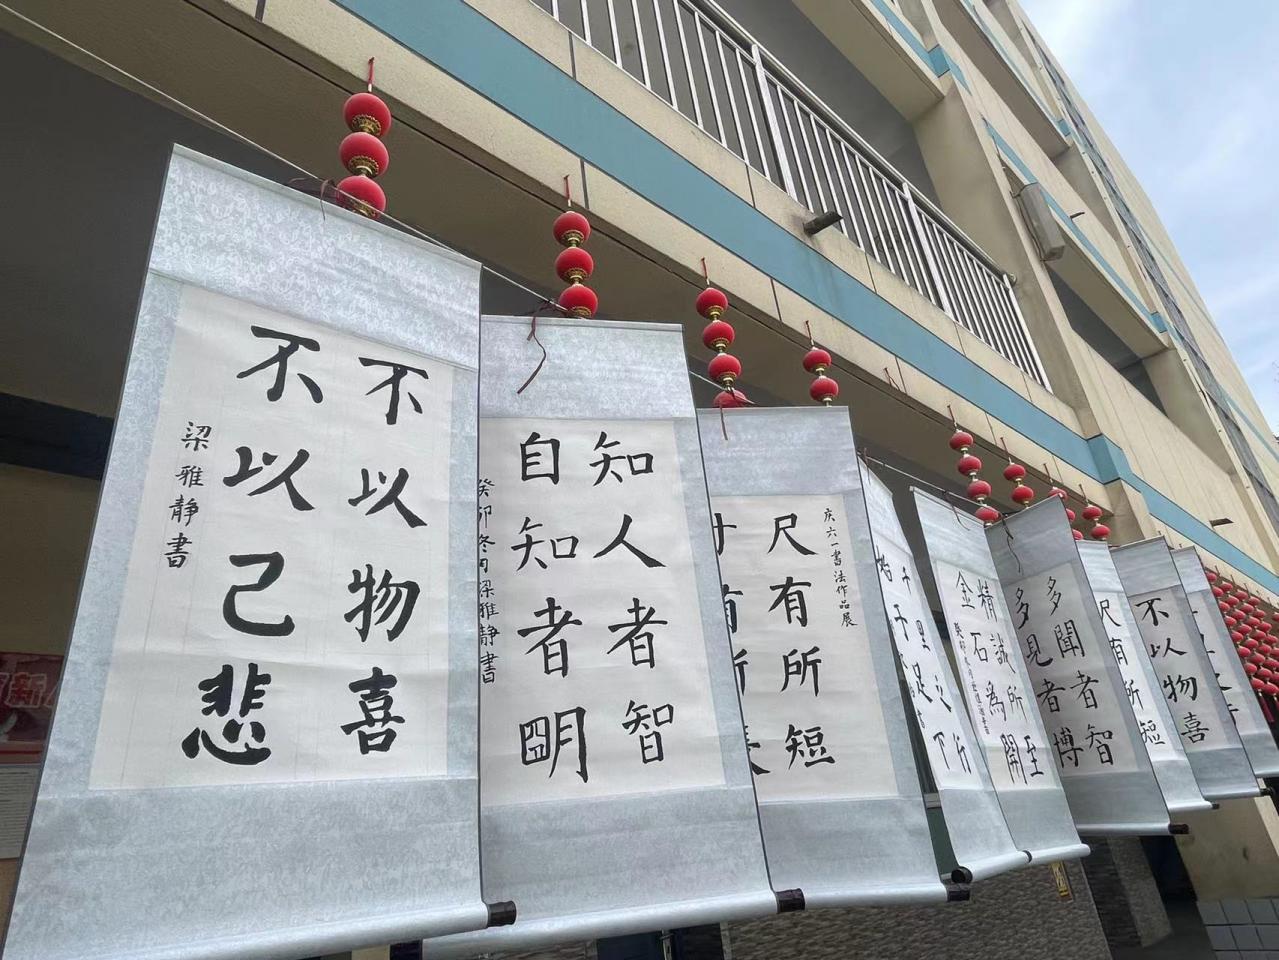 不以物喜
不以己悲
梁雅静書
知人者智
自知者明
癸卯冬月梁雅静書
庆六一書法作品展
尺有所短
寸有所長
千里之行
始于足下
精誠所至
金石為開
多聞者智
多見者博
尺有所短
不以物喜